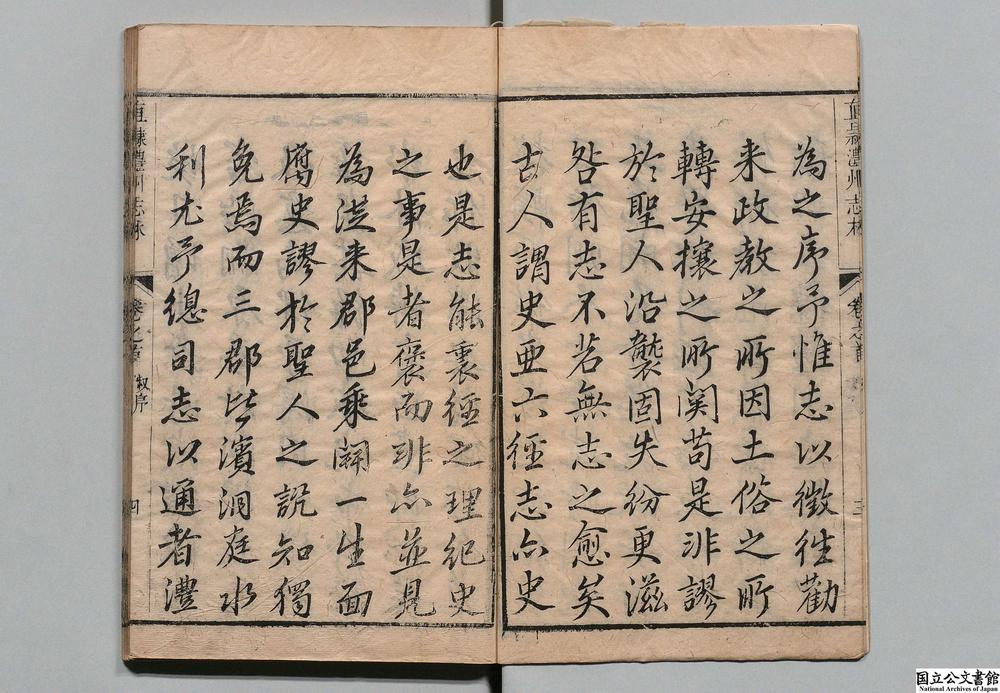 為之序予惟志以徵徃勸
来政教之所因土俗之所
轉安攘之所関苟是非謬
於聖人沿襲固失紛更滋
咎有志不若無志之愈矣
古人謂史亜六徑志亦史
也是志能裏徑之理紀史
之事是者褒而非亦並見
為従来郡邑乗闢一生面
腐史謬於聖人之説知獨
免焉而三郡皆濱洞庭水
利尤予總司志以通者澧
直隷澧州志林
卷之首
三
直隷澧州志林
卷之首
叙序
四
国立公文書館
National Archives of Japan